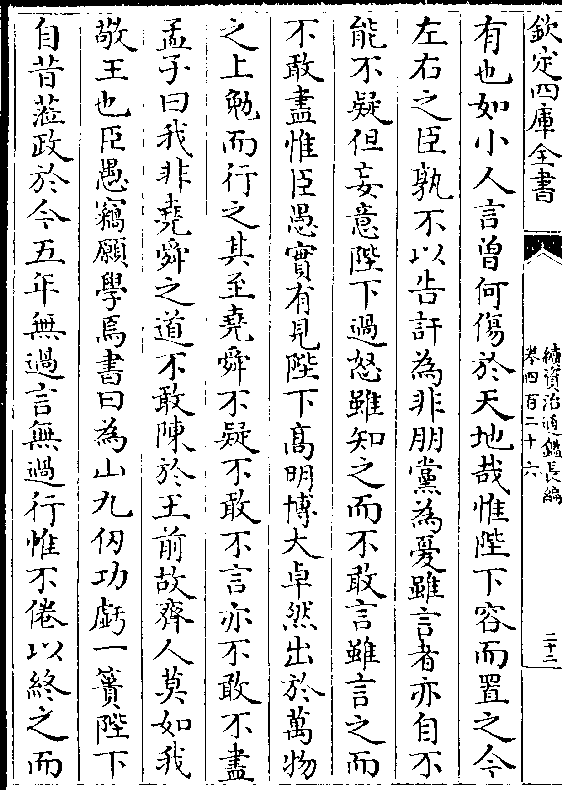 欽定四庫全書
續資治通鑑長編
卷四百二十六
二十二
有也如小人言曽何傷於天地哉惟陛下容而置之今
左右之臣孰不以告訐為非朋黨為憂雖言者亦自不
能不疑但妄意陛下過怒雖知之而不敢言雖言之而
不敢盡惟臣愚實有見陛下髙明博大卓然出於萬物
之上勉而行之其至堯舜不疑不敢不言亦不敢不盡
孟子曰我非堯舜之道不敢陳於王前故齊人莫如我
敬王也臣愚竊願學焉書曰為山九仭功虧一簣陛下
自昔蒞政於今五年無過言無過行惟不倦以終之而